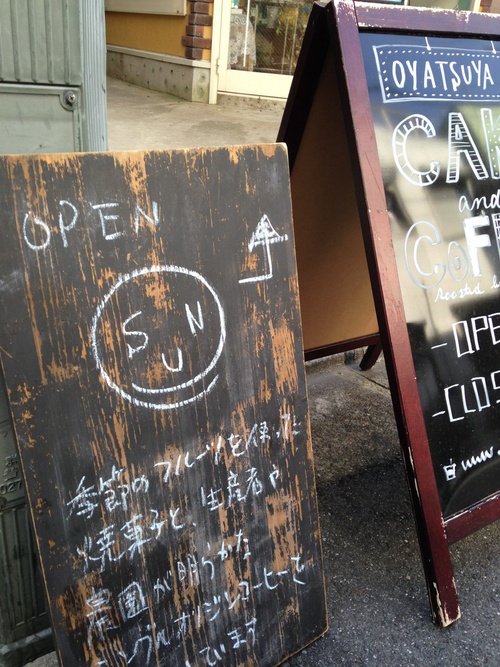 OPEN
SUN
季節のフルーツを使った
焼菓子と、生産者や
農園が明らかな
シングルオリジンコーヒーを
しています
OYATSUYA
CAK
and
COFF
roasted
- OPE
- CLOS
www.